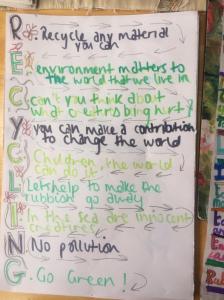 R. Recycle any material
you can
E environment matters to
the world that we live in
C can't you think about
what others being hurt?
Y you can make a contribution
to change the world
C Children, the world
can do it.
L Lets help to make the
rubbish go away
I In the sea are innocent
creatures
N. No pollution
G. Go Green!